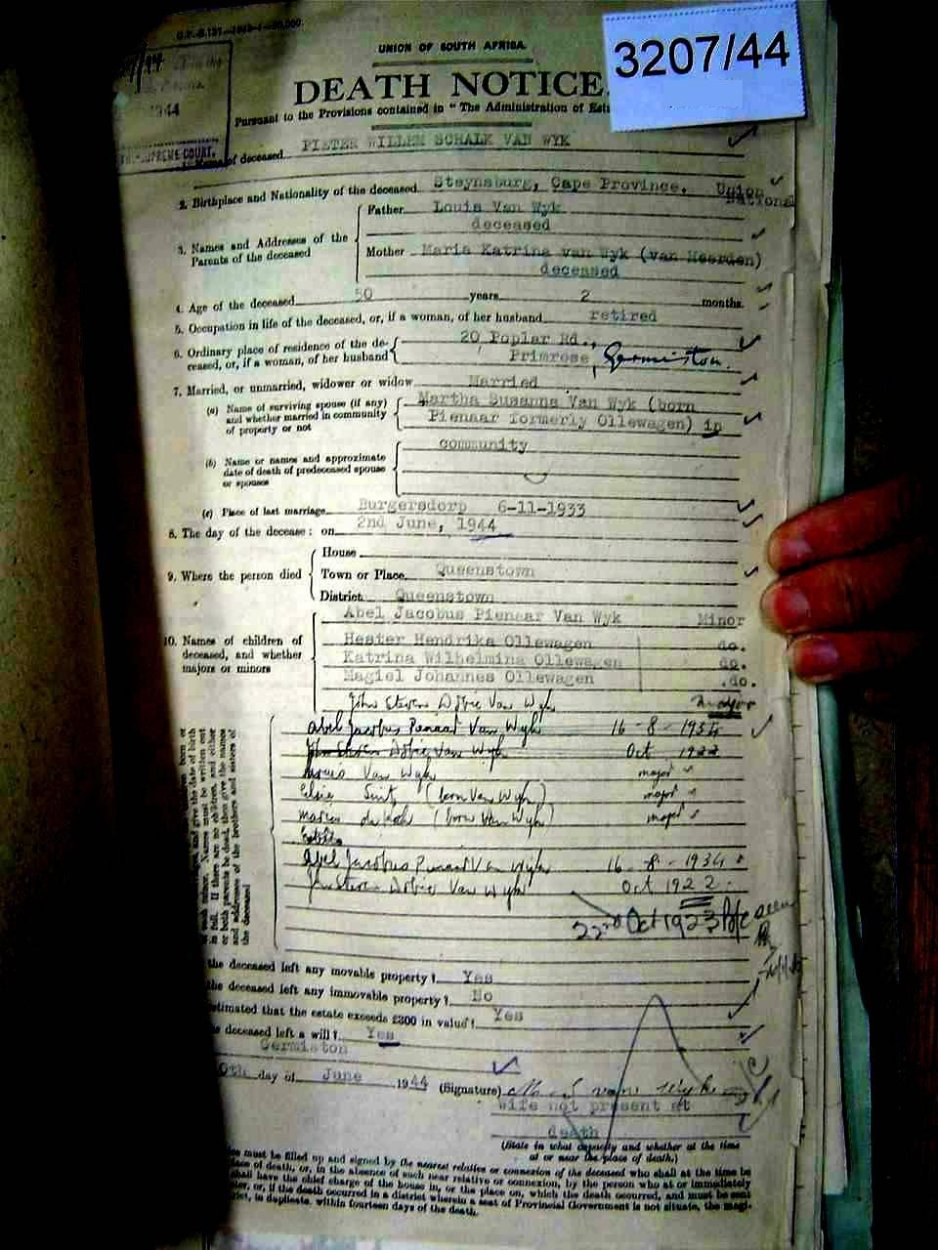 3207/44
UNION OF SOUTH AFRICA.
DEATH NOTICE.
Pursuant to the Provisions contained in "The Administration of
1944
SUPREME COURT.
of deceased PIETER WILLEM SCHALK VAN WYK
2. Birthplace and Nationality of the deceased Steynsburg, Cape Province. Union
National
3. Names and Addresses of the Parents of the deceased
Father Louis Van Wyk
deceased
Mother Maria Katrina van Wyk (van Heerden)
deceased
4. Age of the deceased 50 years 2 months.
5. Occupation in life of the deceased, or, if a woman, of her husband retired
6. Ordinary place of residence of the de-
ceased, or, if a woman, of her husband
20 Poplar Rd.,
Primrose, Germiston.
7. Married, or unmarried, widower or widow Married
(a) Name of surviving spouse (if any)
and whether married in community
of property or not
Martha Susanna Van Wyk (born
Pienaar formerly Ollewagen) in
community
(b) Name or names and approximate
date of death of predeceased spouse
or spouses
(c) Place of last marriage Burgersdorp 6-11-1933
8. The day of the decease: on 2nd June, 1944
9. Where the person died
House
Town or Place Queenstown
District Queenstown
10. Names of children of
deceased, and whether
majors or minors
Abel Jacobus Pienaar Van Wyk Minor
Hester Hendrika Ollewagen do.
Katrina Wilhelmina Ollewagen do.
Magiel Johannes Ollewagen do.
John Steven Van Wyk
Abel Jacobus Van Wyk 16-8-1934
Van Wyk Oct 1922
Van Wyk major
Elsie Smit (born Van Wyk) major
(born Van Wyk) major
Abel Jacobus Van Wyk 16-8-1934
Van Wyk Oct 1922
22nd Oct 1923 seen
and give the date of birth
minor. Names must be written out
in full. If there are no children, and either
or both parents be dead, then give the names
and addresses of the brothers and sisters of
the deceased
the deceased left any movable property? Yes
the deceased left any immovable property? No
estimated that the estate exceeds £300 in value? Yes
deceased left a will? Yes
Germiston
day of June 1944 (Signature) M. S. van Wyk
wife not present at
death
(State in what capacity and whether at the time
at or near the place of death.)
must be filled up and signed by the nearest relative or connexion of the deceased who shall at the time be
of death, or, in the absence of such near relative or connexion, by the person who at or immediately
shall have the chief charge of the house in, or the place on, which the death occurred, and must be sent
or, if the death occurred in a district wherein a seat of Provincial Government is not situate, the magi-
in duplicate, within fourteen days of the death.